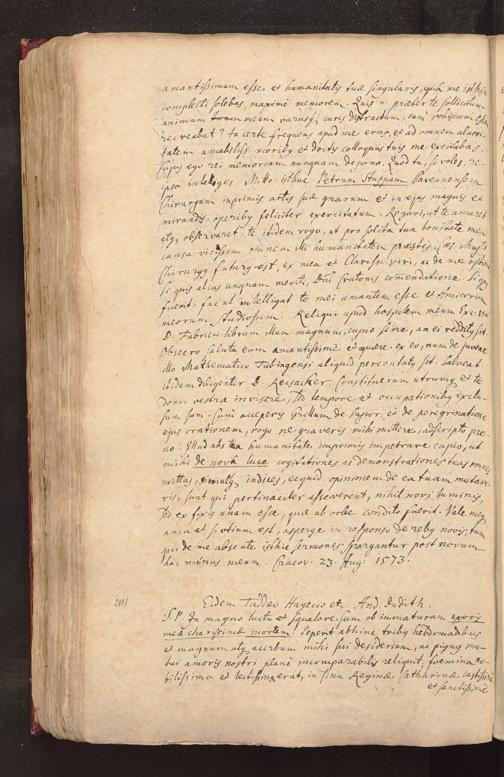 amantissimum esse, et humanitatis tuæ singularis, quâ me isthic
complecti solebas, maximè memorem. Quis n. præter te sollicitum
animum meum varijsq; curis distractum, cum vobiscum essem
recreabat? tu certe frequens apud me eras, et ad omnem alacri-
tatem amabiliss. moribus et doctis colloquijs tuis me excitabas.
Cujus ego rei memoriam nunquam deponam. Quod tu, si voles, re
ipsa intelliges. Mitto isthuc Petrum
Chirurgum inprimis artis suæ gnarum et in ejus magnis et
mirandis operibus feliciter exercitatum. Rogavi, ut te amaret
atq; observaret. te itidem rogo, ut pro solita tua bonitate mea
causa vicissim omnem illi humanitatem præstes.
Chirurgus futurus est, ex mea et Clariss. viri, ac de me optime
si quis alius unquam meriti, Dni Cratonis commendatione. Si
fuerit: facut intelligat te mei amantem esse et amicorum
meorum studiosum. Reliqui apud hospitem meum Exc. Viri
D. Fabricii librum illum magnum, cupio scire, an ei reddity sit.
Obsecro saluta eum amantissimè et quære ex eo, num de juvene
illo Mathematico Tubingensi aliquid percontaty sit. Salveat
itidem diligenter D. Reisacker. Constitueram utrumq; et te
domi vestræ invisere, sed tempore et occupationibus exclu-
sus sum. Simi acceperis de et de peregrinatione
ejus orationem, rogo ne graveris mihi mittere, adscripto pre-
cio. Illud abs tua humanitate inprimis impetrare cupio, ut
mihi de nova luce cogitationes ac demonstrationes tuas prius
mittas, simulq; indices, ecquid opinionem de ea tuam mutave-
ris, sunt qui pertinaciter asseverent, nihil novi luminis,
sed ex fixis unam esse, quæ ab orbe condito fuerit. Vale mey
amice et si otium est, asperge in responso de rebus novis, tum
qui de me absente isthic sermones spargantur post novum
hoc meum. Cracov. 23. Aug: 1573.
201)
Eidem Taddæo Hayecio etc. And. Dudith.
S.P. In magno luctu et squalore sum ob immaturam uxoris
meæ charissimæ mortem. Sepeni abhinc tribus hebdomadibus
et magnum atq; acerbum mihi sui desiderium, ac pignus mu-
tui amoris nostri planè incomparabilis reliquit, foemina no-
bilissima et lectissima erat, in sinu Reginæ Catharinæ castissimæ
et sanctissimæ